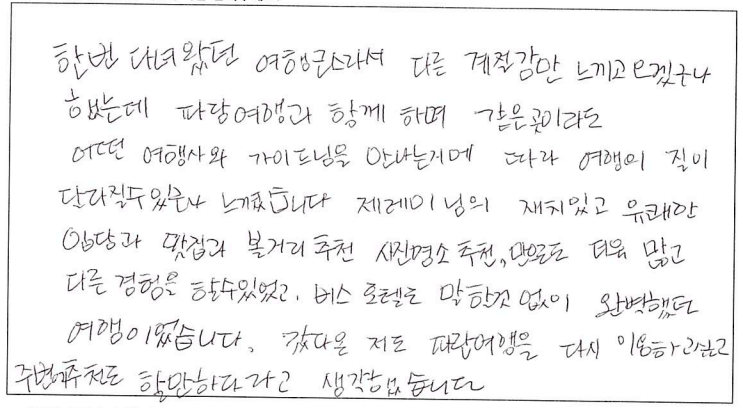 한번 다녀왔던 여행코스라서 다른 계절감만 느끼고 오겠구나
했는데 파랑여행과 함께 하며 같은곳이라도
어떤 여행사와 가이드님을 만나는지에 따라 여행의 질이
달라질수있구나 느꼈습니다 제레미님의 재치있고 유쾌한
입담과 맛집과 볼거리 추천 사진명소 추천, 만으로도 더욱 많고
다른 경험을 할수있었고, 버스 호텔도 말할것 없이 완벽했던
여행이었습니다. 갔다온 저도 파랑여행을 다시 이용하려하고
주변에추천도 할만하다라고 생각했습니다